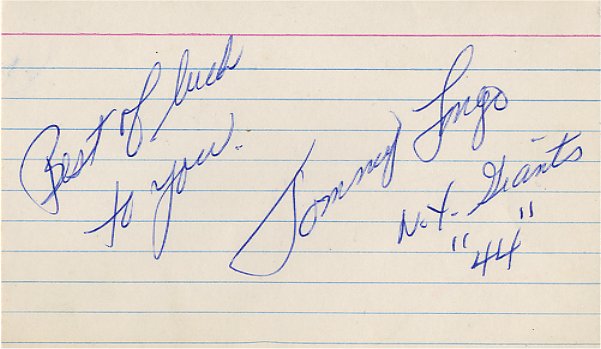 Best of luck
to you.
Tommy Longo
N.Y. Giants
"44"